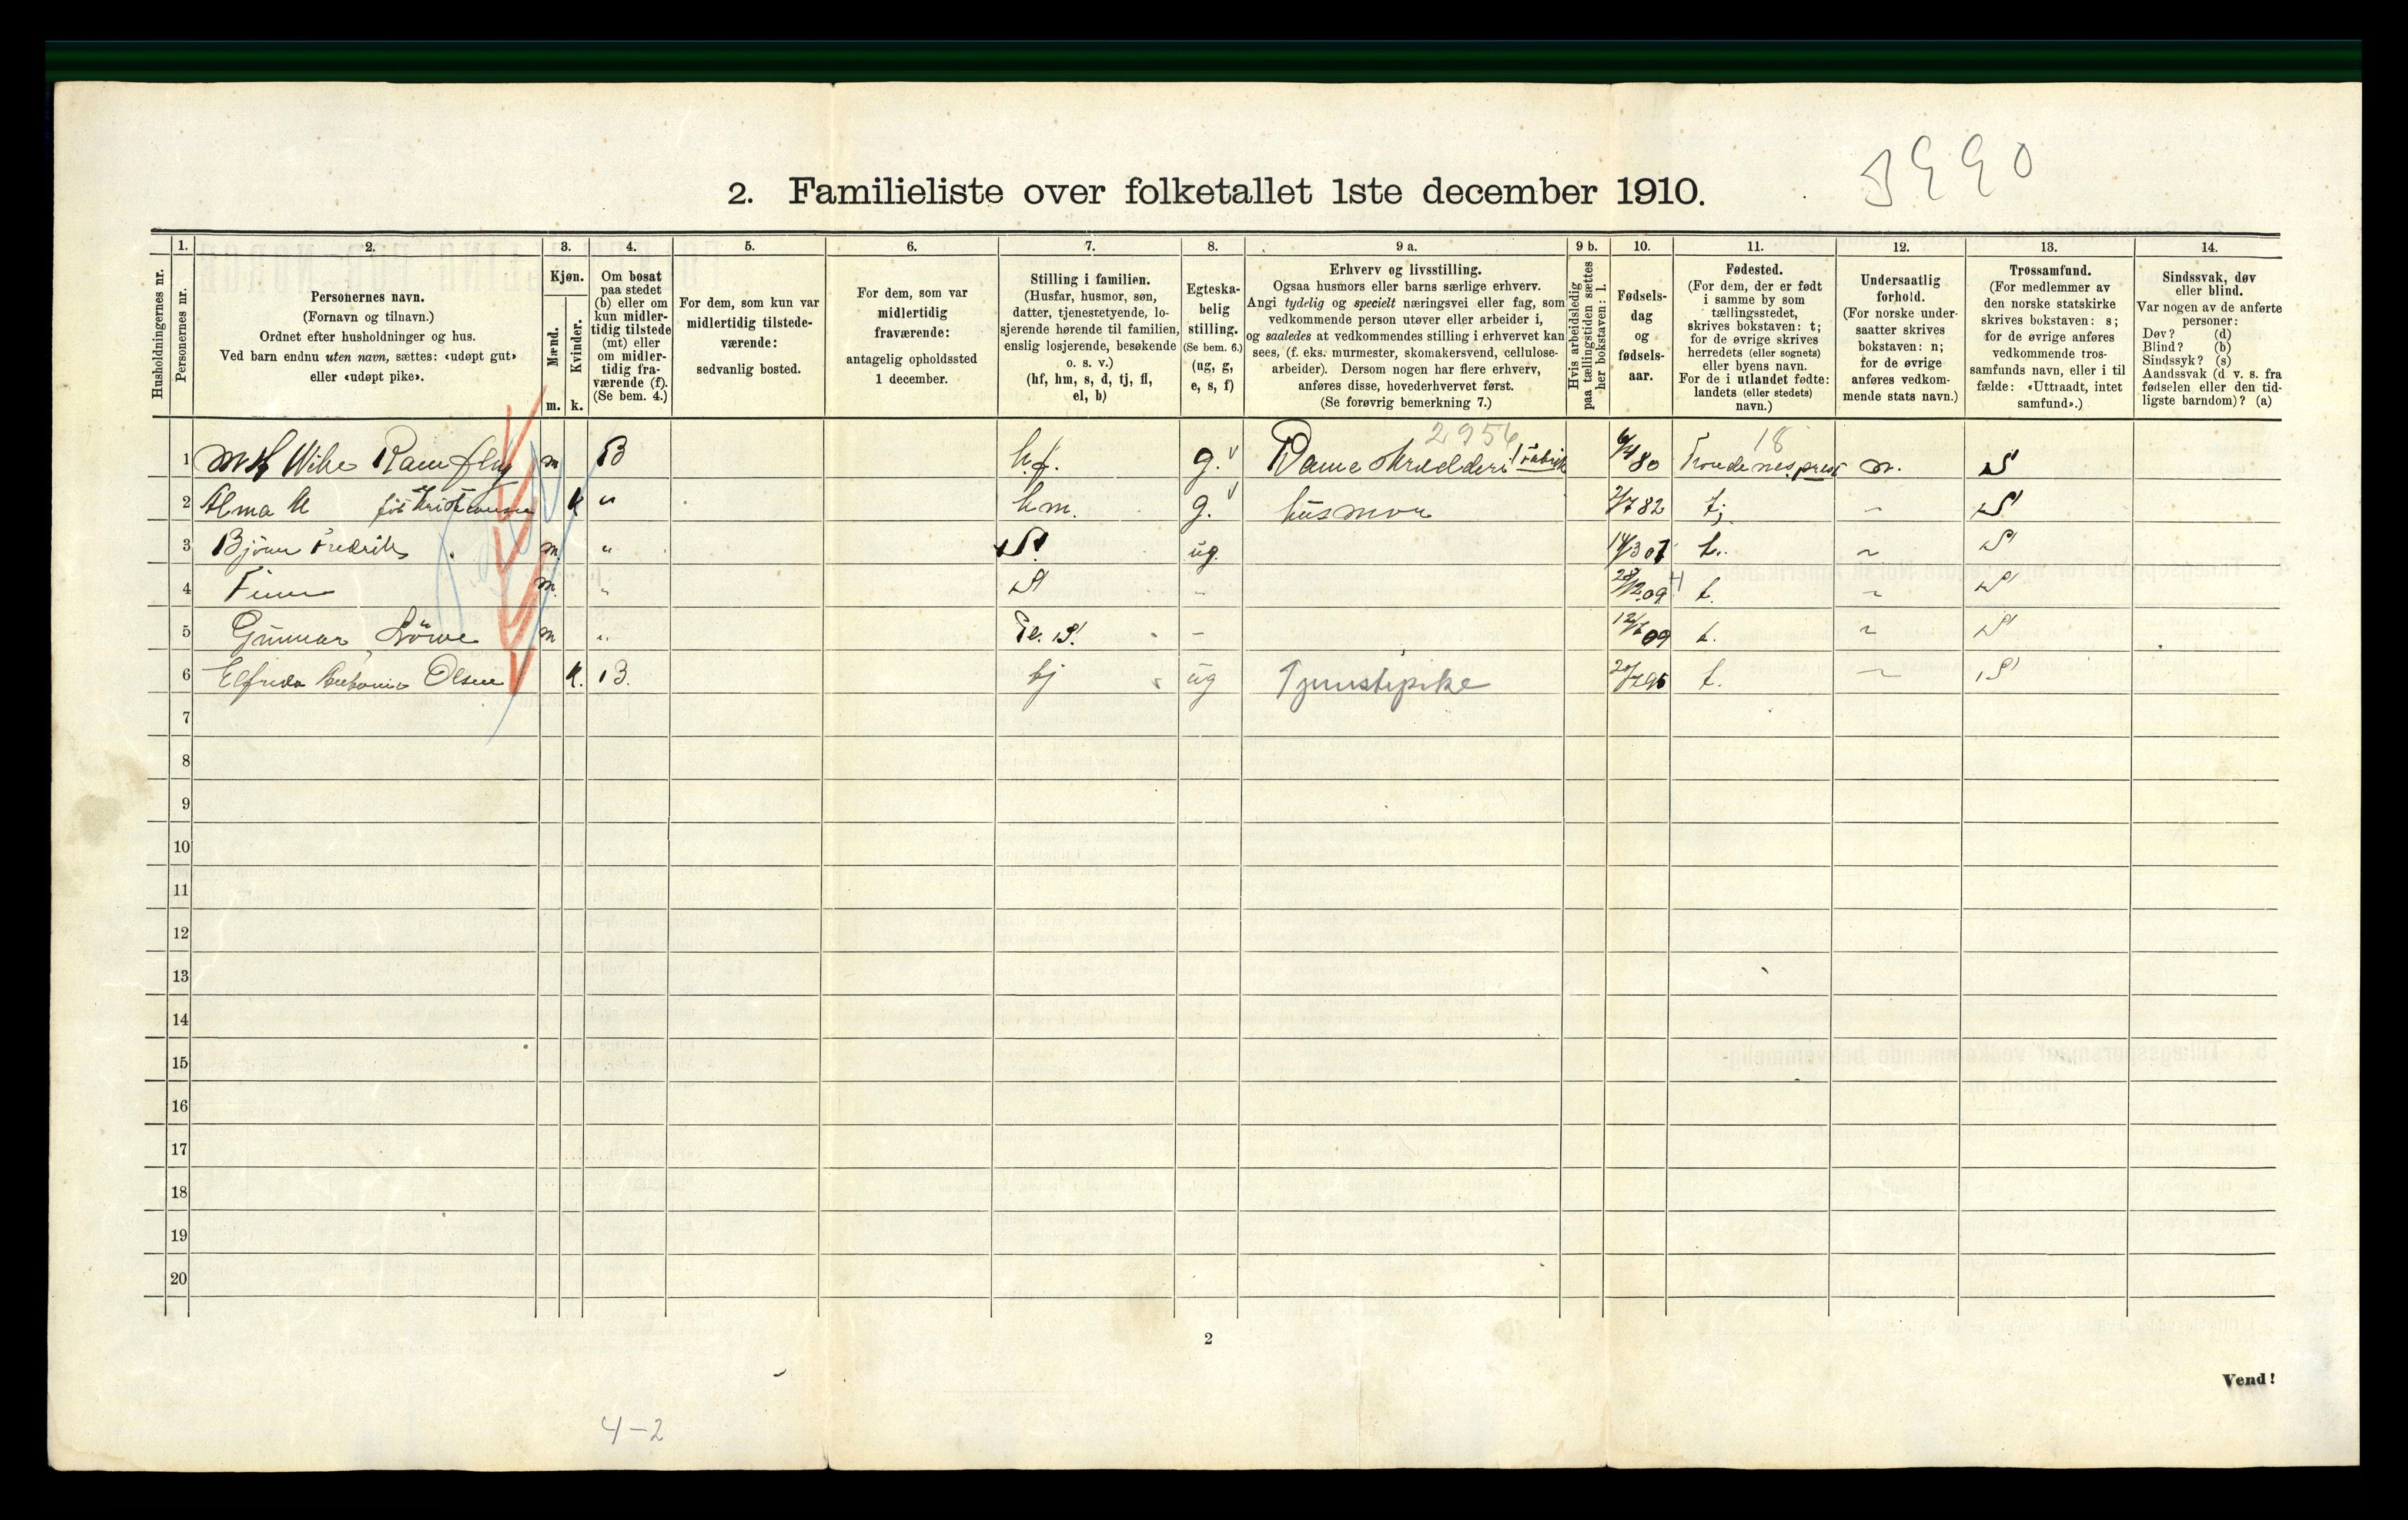 3990
2. Familieliste over folketallet 1ste december 1910.
Husholdningernes nr.
1.
Personernes nr.
2.
Personernes navn.
(Fornavn og tilnavn.)
Ordnet efter husholdninger og hus.
Ved barn endnu uten navn, sættes: «udøpt gut»
eller «udøpt pike».
3.
Kjøn.
Mænd.
Kvinder.
m. k.
4.
Om bosat
paa stedet
(b) eller om
kun midler-
tidig tilstede
(mt) eller
om midler-
tidig fra-
værende (f).
(Se bem. 4.)
5.
For dem, som kun var
midlertidig tilstede-
værende:
sedvanlig bosted.
6.
For dem, som var
midlertidig
fraværende:
antagelig opholdssted
1 december.
7.
Stilling i familien.
(Husfar, husmor, søn,
datter, tjenestetyende, lo-
sjerende hørende til familien,
enslig losjerende, besøkende
o. s. v.)
(hf, hm, s, d, tj, fl,
el, b)
8.
Egteska-
belig
stilling.
(Se bem. 6.)
(ug, g,
e, s, f)
9 a.
Erhverv og livsstilling.
Ogsaa husmors eller barns særlige erhverv.
Angi tydelig og specielt næringsvei eller fag, som
vedkommende person utøver eller arbeider i,
og saaledes at vedkommendes stilling i erhvervet kan
sees, (f. eks. murmester, skomakersvend, cellulose-
arbeider). Dersom nogen har flere erhverv,
anføres disse, hovederhvervet først.
(Se forøvrig bemerkning 7.)
9 b.
Hvis arbeidsledig
paa tællingstiden sættes
her bokstaven: l.
10.
Fødsels-
dag
og
fødsels-
aar.
11.
Fødested.
(For dem, der er født
i samme by som
tællingsstedet,
skrives bokstaven: t;
for de øvrige skrives
herredets (eller sognets)
eller byens navn.
For de i utlandet fødte:
landets (eller stedets)
navn.)
12.
Undersaatlig
forhold.
(For norske under-
saatter skrives
bokstaven: n;
for de øvrige
anføres vedkom-
mende stats navn.)
13.
Trossamfund.
(For medlemmer av
den norske statskirke
skrives bokstaven: s;
for de øvrige anføres
vedkommende tros-
samfunds navn, eller i til
fælde: «Uttraadt, intet
samfund».)
14.
Sindssvak, døv
eller blind.
Var nogen av de anførte
personer:
Døv? (d)
Blind? (b)
Sindssyk? (s)
Aandssvak (d. v. s. fra
fødselen eller den tid-
ligste barndom)? (a)
2956 18
1 Wike m B hf. g. Dame skrædderi fabrik 6/4 80 Trondenes prest n. S
2 Alma M fød Kristiansen k " hm. g. husmor 2/7 82 t. ~ S
3 Bjørn Fredrik m. " S. ug. 14/3 07 t. ~ S
4 Finn m. " S - 09 t. ~ S
5 Gunnar m " S. - 09 t. ~ S
6 Elfrida Olsen k. B. tj ug Tjenestepike 20/7 95 t. ~ S
7
8
9
10
11
12
13
14
15
16
17
18
19
20
2
Vend!
4-2